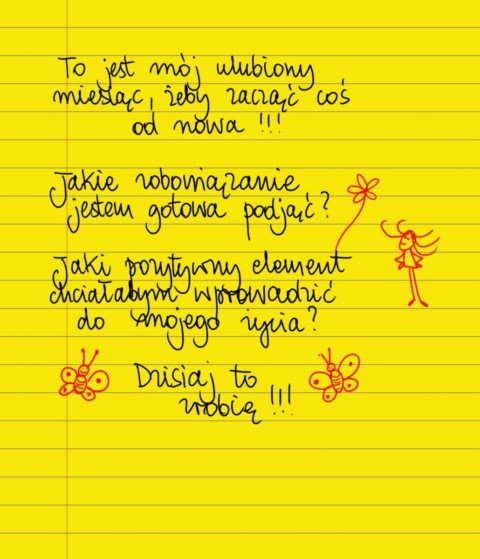 To jest mój ulubiony
miesiąc, żeby zacząć coś
od nowa !!!
Jakie zobowiązanie
jestem gotowa podjąć?
Jaki pozytywny element
chciałabym wprowadzić
do mojego życia?
Dzisiaj to
zrobię !!!